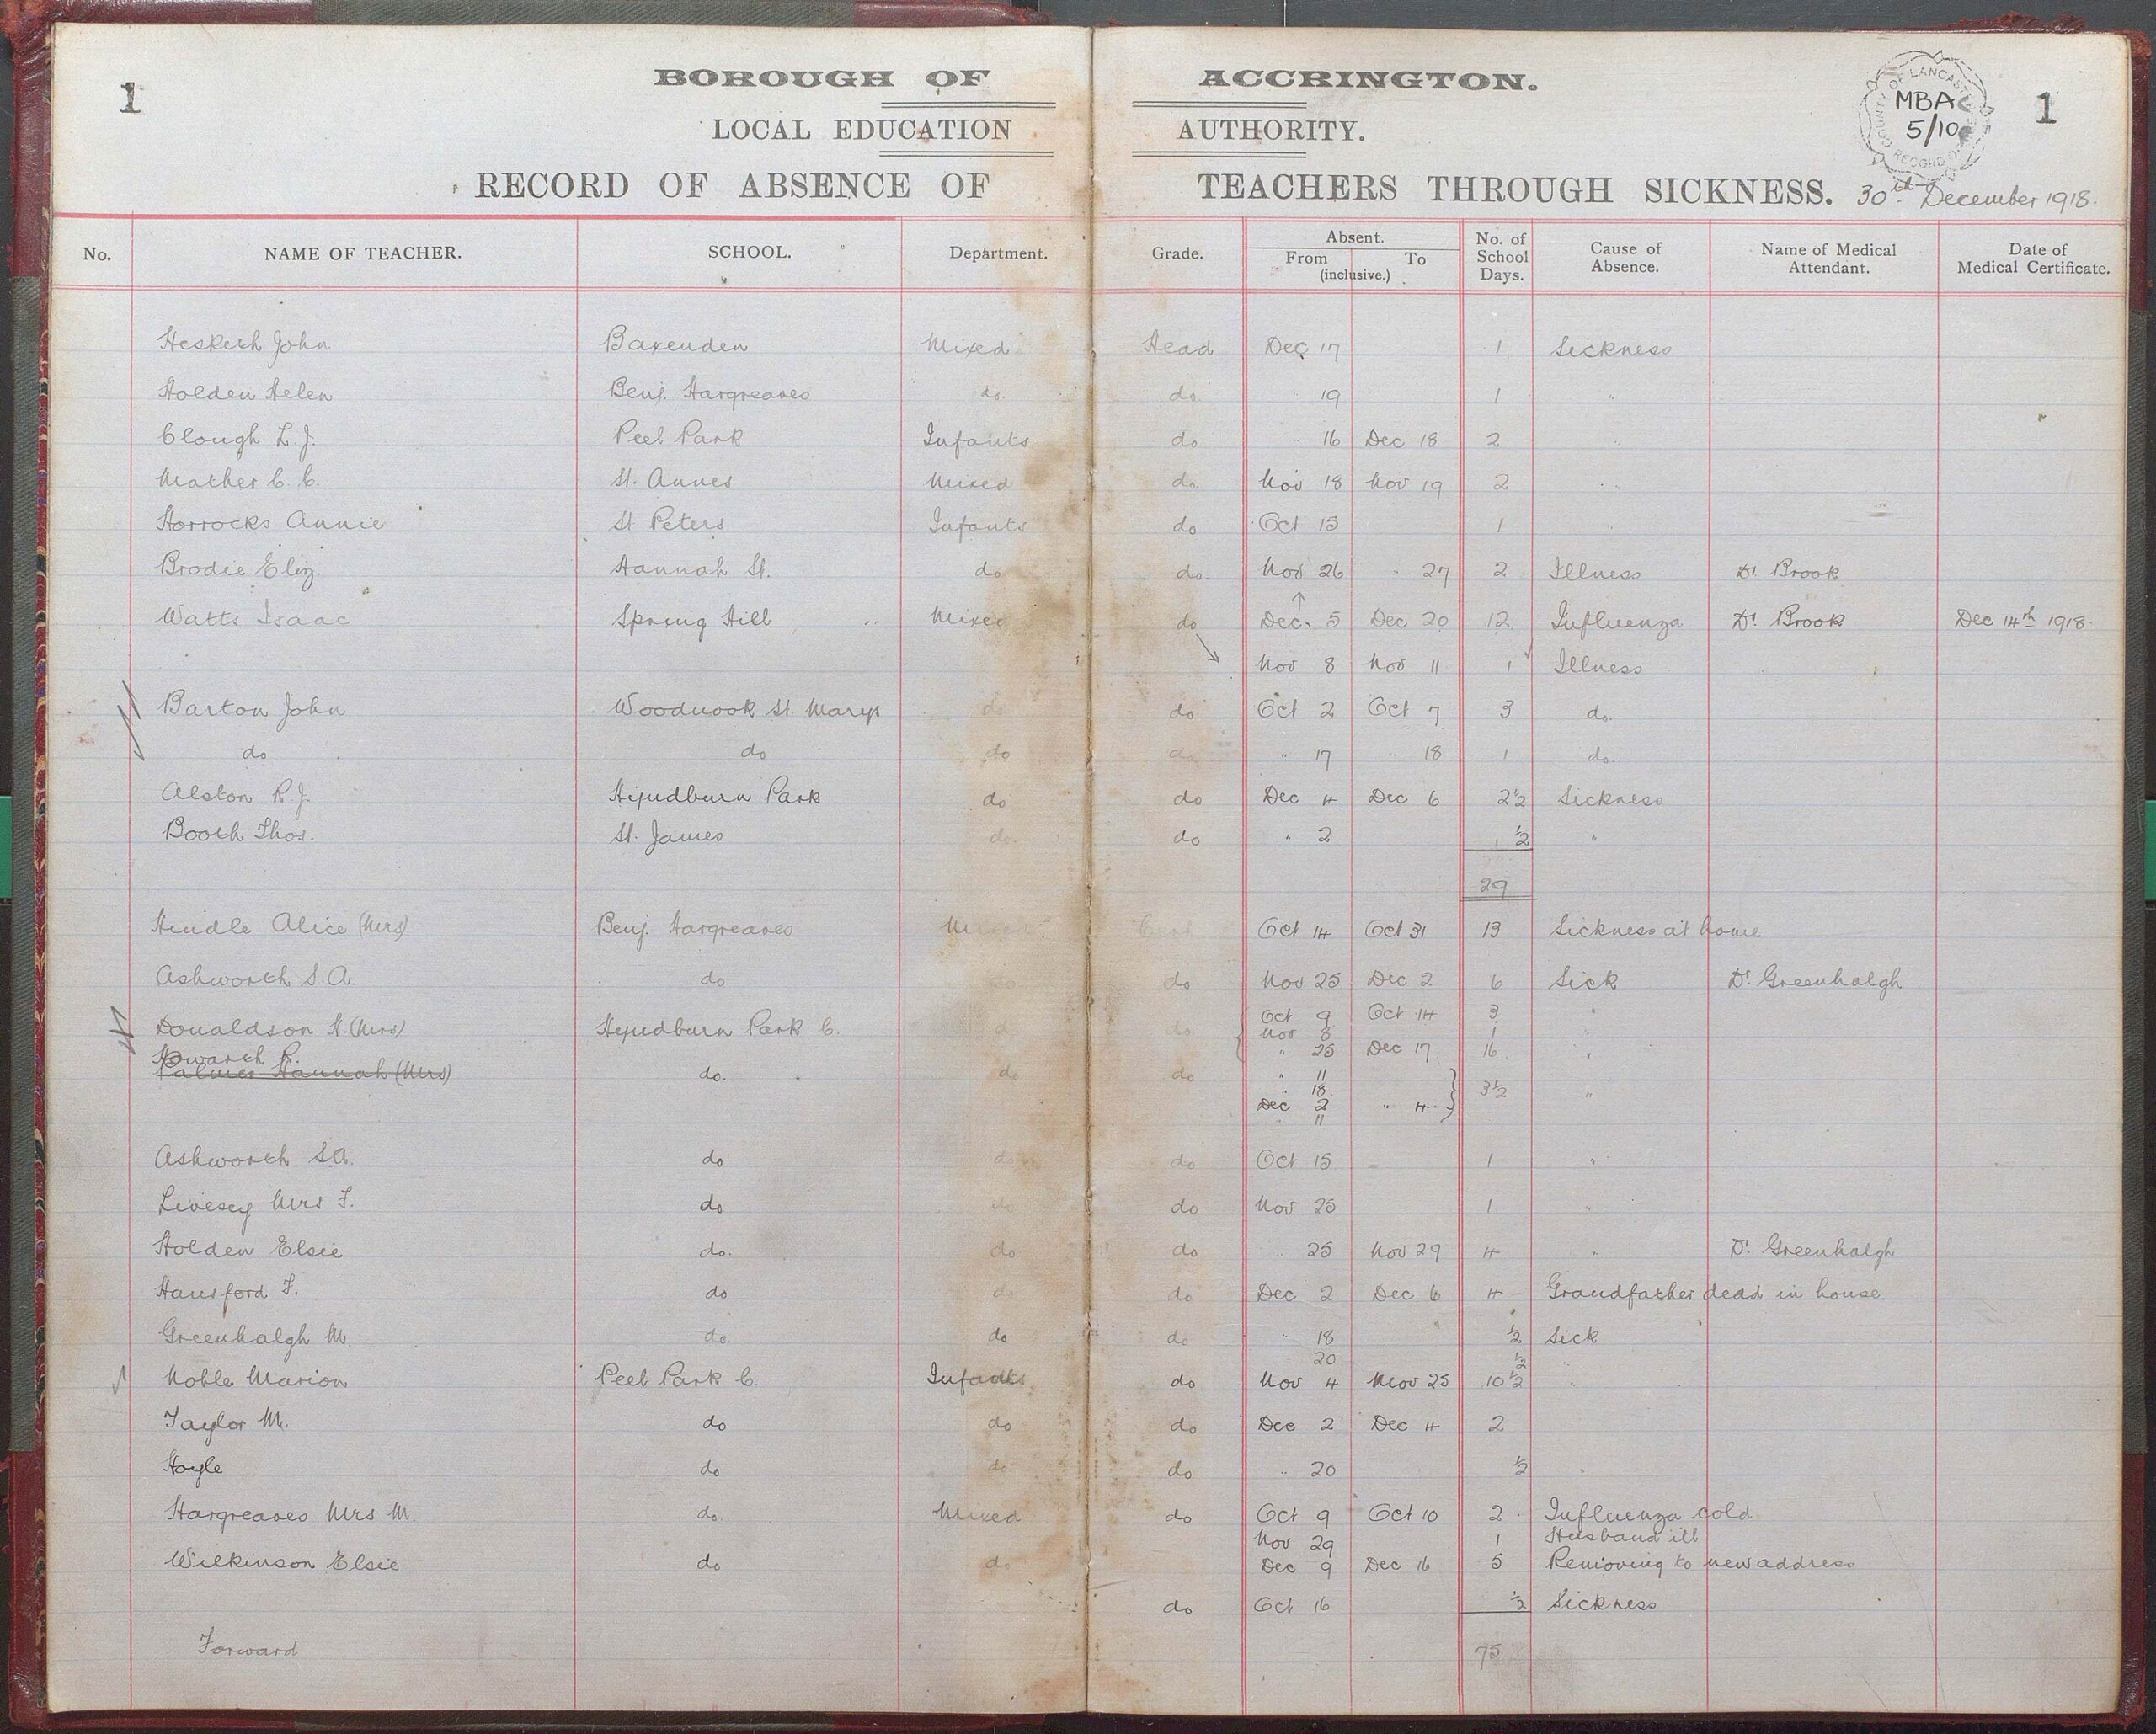 1
BOROUGH OF ACCRINGTON.
LOCAL EDUCATION AUTHORITY.
RECORD OF ABSENCE OF TEACHERS THROUGH SICKNESS. 30th December 1918.
COUNTY OF LANCASTER RECORD OFFICE
MBAC
5/10
1
No. NAME OF TEACHER. SCHOOL. Department. Grade. Absent. From To (inclusive.) No. of School Days. Cause of Absence. Name of Medical Attendant. Date of Medical Certificate.
Hesketh John Baxenden Mixed Head Dec 17 1 Sickness
Holden Helen Benj. Hargreaves do. do 19 1 "
Clough L. J. Peel Park Infants do " 16 Dec 18 2 "
Mather C. C. St. Annes Mixed do. Nov 18 Nov 19 2 "
Horrocks Annie St Peters Infants do Oct 15 1 "
Brodie Eliz. Hannah St. do do. Nov 26 " 27 2 Illness Dr Brook
Watts Isaac Spring Hill Mixed do Dec. 5 Dec 20 12 Influenza Dr Brook Dec 14th 1918.
Nov 8 Nov 11 1 Illness
Barton John Woodnook St. Marys do do Oct 2 Oct 7 3 do.
do do do do " 17 " 18 1 do.
Alston R J. Hyndburn Park do do Dec 4 Dec 6 2½ Sickness
Booth Thos. St. James do. do " 2 ½ "
29
Hindle Alice (Mrs) Benj. Hargreaves Mixed Cert Oct 14 Oct 31 13 Sickness at home
Ashworth S. A. do. do do Nov 25 Dec 2 6 Sick Dr Greenhalgh
Donaldson H. (Mrs) Hyndburn Park C. do do Oct 9 Oct 14 3 "
Nov 8 1 "
" 25 Dec 17 16 "
Howarth R.
Palmer Hannah (Mrs) do. do do " 11
" 18 3½ "
Dec 2 " 4
11
Ashworth S.A. do do do Oct 15 1 "
Livesey Mrs F. do do do Nov 25 1 "
Holden Elsie do. do do " 25 Nov 29 4 " Dr Greenhalgh
Hansford F. do do do Dec 2 Dec 6 4 Grandfather dead in house.
Greenhalgh M. do. do do " 18 ½ Sick
20 ½ "
Noble Marion Peel Park C. Infants do Nov 4 Nov 25 10½ "
Taylor M. do do do Dec 2 Dec 4 2
Hoyle do do do " 20 ½ "
Hargreaves Mrs M. do. Mixed do Oct 9 Oct 10 2 Influenza cold
Nov 29 1 Husband ill
Wilkinson Elsie do do Dec 9 Dec 16 5 Removing to new address
do Oct 16 ½ Sickness
Forward 75